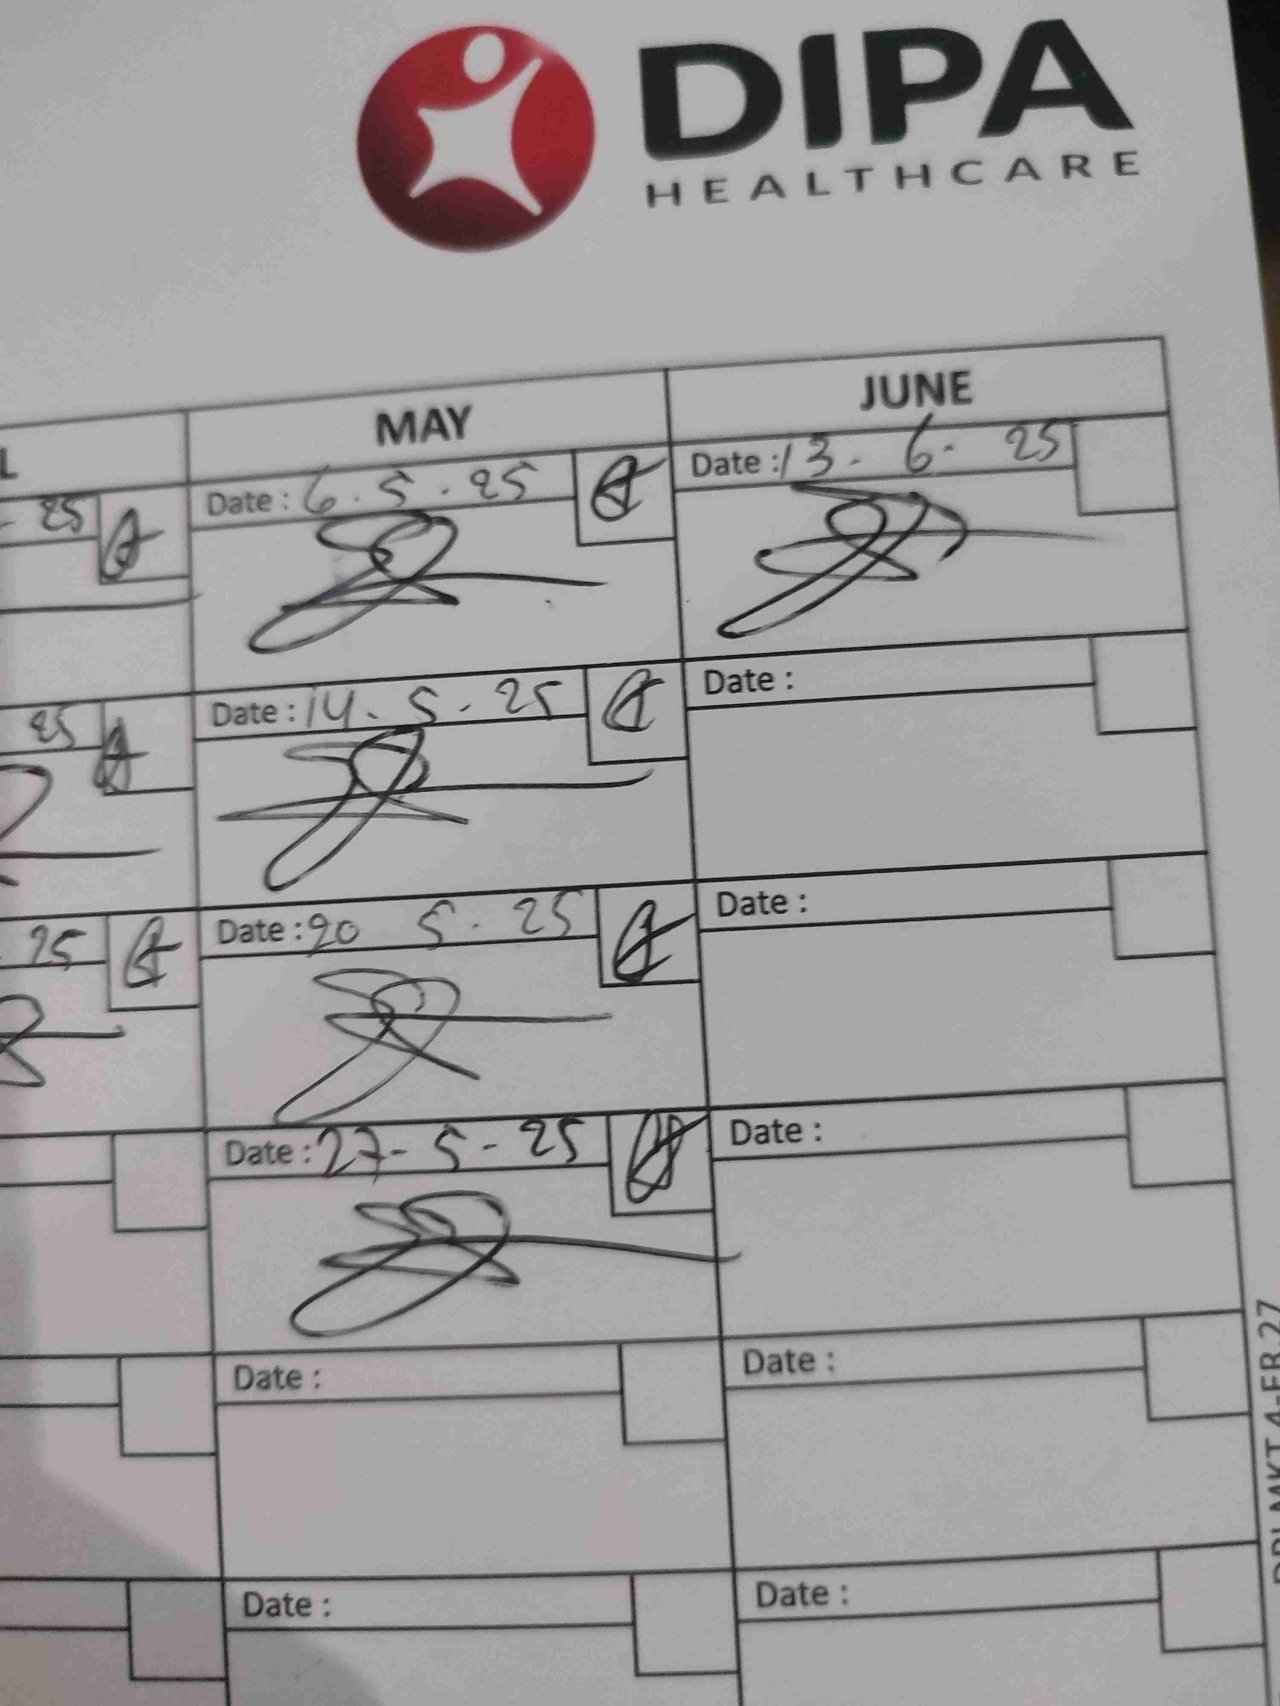 DIPA
HEALTHCARE
L
MAY
JUNE
25
Date : 6.5.25
Date : 13.6.25
25
Date : 14.5.25
Date :
25
Date : 20 5.25
Date :
Date : 27-5-25
Date :
Date :
Date :
Date :
Date :